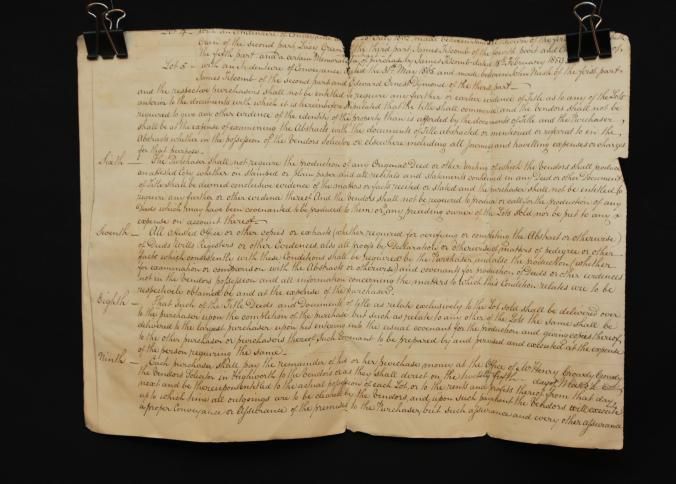 Lot 4 - with an Indenture of Conveyance dated July 1862 made between of the first
of the second part Lucy Gran the third part James Titcomb of the fourth part and
the fifth part and a certain Memorandum of purchase by James Titcomb dated 18th February 1853
Lot 5 - with an Indenture of Conveyance dated the 31st May 1865 and made between John of the first part
James Titcomb of the second part and Edward Ernest Dymond of the third part
and the respective purchasers shall not be entitled to require any further or earlier evidence of Title as to any of the Lots
anterior to the documents with which it is hereinbefore stipulated that the Title shall commence and the Vendors shall not be
required to give any other evidence of the identity of the property than is afforded by the documents of Title and the Purchaser
shall be at the expense of examining the Abstracts with the documents of Title abstracted or mentioned or referred to in the
Abstracts whether in the possession of the Vendors Solicitor or elsewhere including all Journeys and travelling expenses or charges
for that purpose.
Sixth — The Purchaser shall not require the production of any Original Deed or other writing of which the Vendors shall produce
an attested copy whether on stamped or plain paper and all recitals and statements contained in any Deed or other Document
of Title shall be deemed conclusive evidence of the matters or facts recited or stated and the purchaser shall not be entitled to
require any further or other evidence thereof And the Vendors shall not be required to produce or call for the production of any
Deeds which may have been covenanted to be produced to them or any preceding owner of the Lots sold nor be put to any
expense on account thereof
Seventh — All Attested Office or other copies or extracts (whether required for verifying or completing the Abstract or otherwise)
of Deeds Wills Registers or other Evidences also all proofs by Declaration or otherwise of matters of pedigree or other
facts which consistently with these Conditions shall be required by the Purchaser and also the production (whether
for examination or comparison with the Abstracts or otherwise) and covenants for production of Deeds or other evidences
not in the Vendors possession and all information concerning the matters to which this Condition relates are to be
respectively obtained by and at the expense of the purchaser
Eighth — That such of the Title Deeds and Documents of title as relate exclusively to the Lot sold shall be delivered over
to the purchaser upon the completion of the purchase but such as relate to any other of the Lots the same shall be
delivered to the largest purchaser upon his entering into the usual covenant for the production and giving copies thereof
to the other purchaser or purchasers thereof Such Covenant to be prepared by and perused and executed at the expense
of the person requiring the same.
Ninth — Each purchaser shall pay the remainder of his or her purchase money at the Office of Mr. Henry Crowdy
the Vendors Solicitor in Highworth to the Vendors or as they shall direct on the day of
next and be thereupon entitled to the actual possession of each Lot, or to the rents and profits thereof from that day
up to which time all outgoings are to be cleared by the Vendors and upon such payment the Vendors will execute
a proper Conveyance or Assurance of the premises to the Purchaser but such assurance and every other assurance